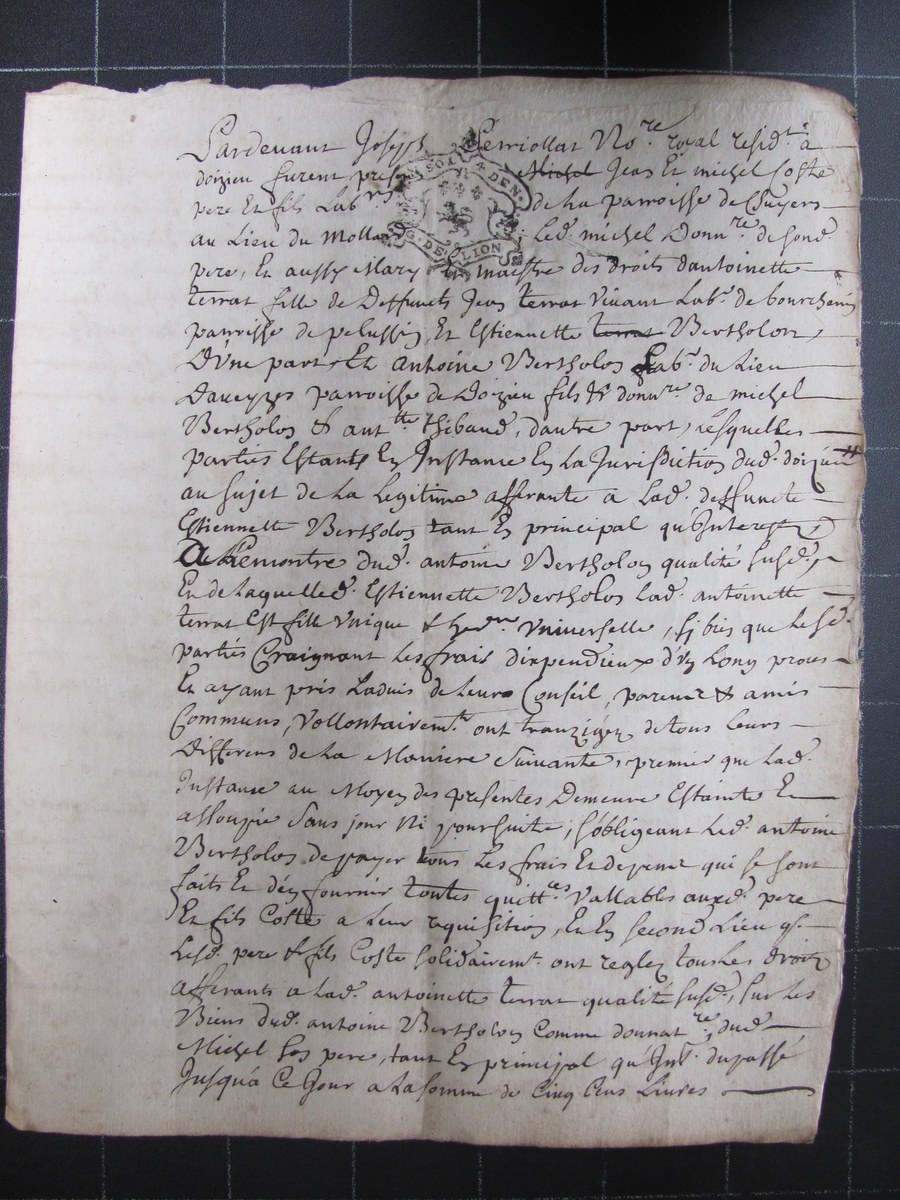 Pardevant Joseph Perriollat No.re royal resid.t a
doizieu furent presens Michel Jean Et michel Coste
pere Et fils Lab.rs de La parroisse de Chuyers
au Lieu du Mollard, Led. michel Donn.re de sond.
pere, Et aussy Mary Et maistre des droits dantoinette
terrat fille de Deffunets Jean terrat vivant Lab.r de bourchany
parroisse de pelussin, Et Estiennette terrat Bertholon,
D'Une part, Et Antoine Bertholon Lab.r du Lieu
Daveyzes parroisse de Doizieu fils & donn.re de michel
Bertholon & ant.tte thibaud, dautre part, Lesquelles
parties Estants En Instance En La Jurisdiction dud. doizieu
au sujet de La Legitime afferante a Lad. deffuncte
Estiennette Bertholon tant En principal qu'Interest,
A Remontre dud. antoine Bertholon qualité susd.,
En de Laquelled. Estiennette Bertholon Lad. antoinette
terrat Est fille Unique & her.re Universelle, si bien que Lesd.
parties Craignant Les frais dispendieux d'Un Long proces
Et ayant pris Ladvis de Leurs Conseil, parens & amis
Communs, Vollontairem.t ont tranzigez de tous Leurs
Differens de La Maniere Suivante, premier que Lad.
Instance au Moyen des presentes Demeure Estainte Et
assoupie Sans jour Ni poursuite, s'obligeant Led. antoine
Bertholon de payer tous Les frais Et depens qui se sont
faits Et d'en fournir toutes quitt.ces Vallables auxd. pere
Et fils Coste a Leur requisition, Et En second Lieu q.
Lesd. pere & fils Coste solidairem.t ont reglez tous Les droits
afferants a Lad. antoinette terrat qualité susd., sur Les
Biens dud. antoine Bertholon Comme donnat.re, dud.
Michel son pere, tant En principal qu'Int. du passé
Jusqu'a Ce Jour a La somme de Cinq Cens Livres
DEN.
G. DE LION